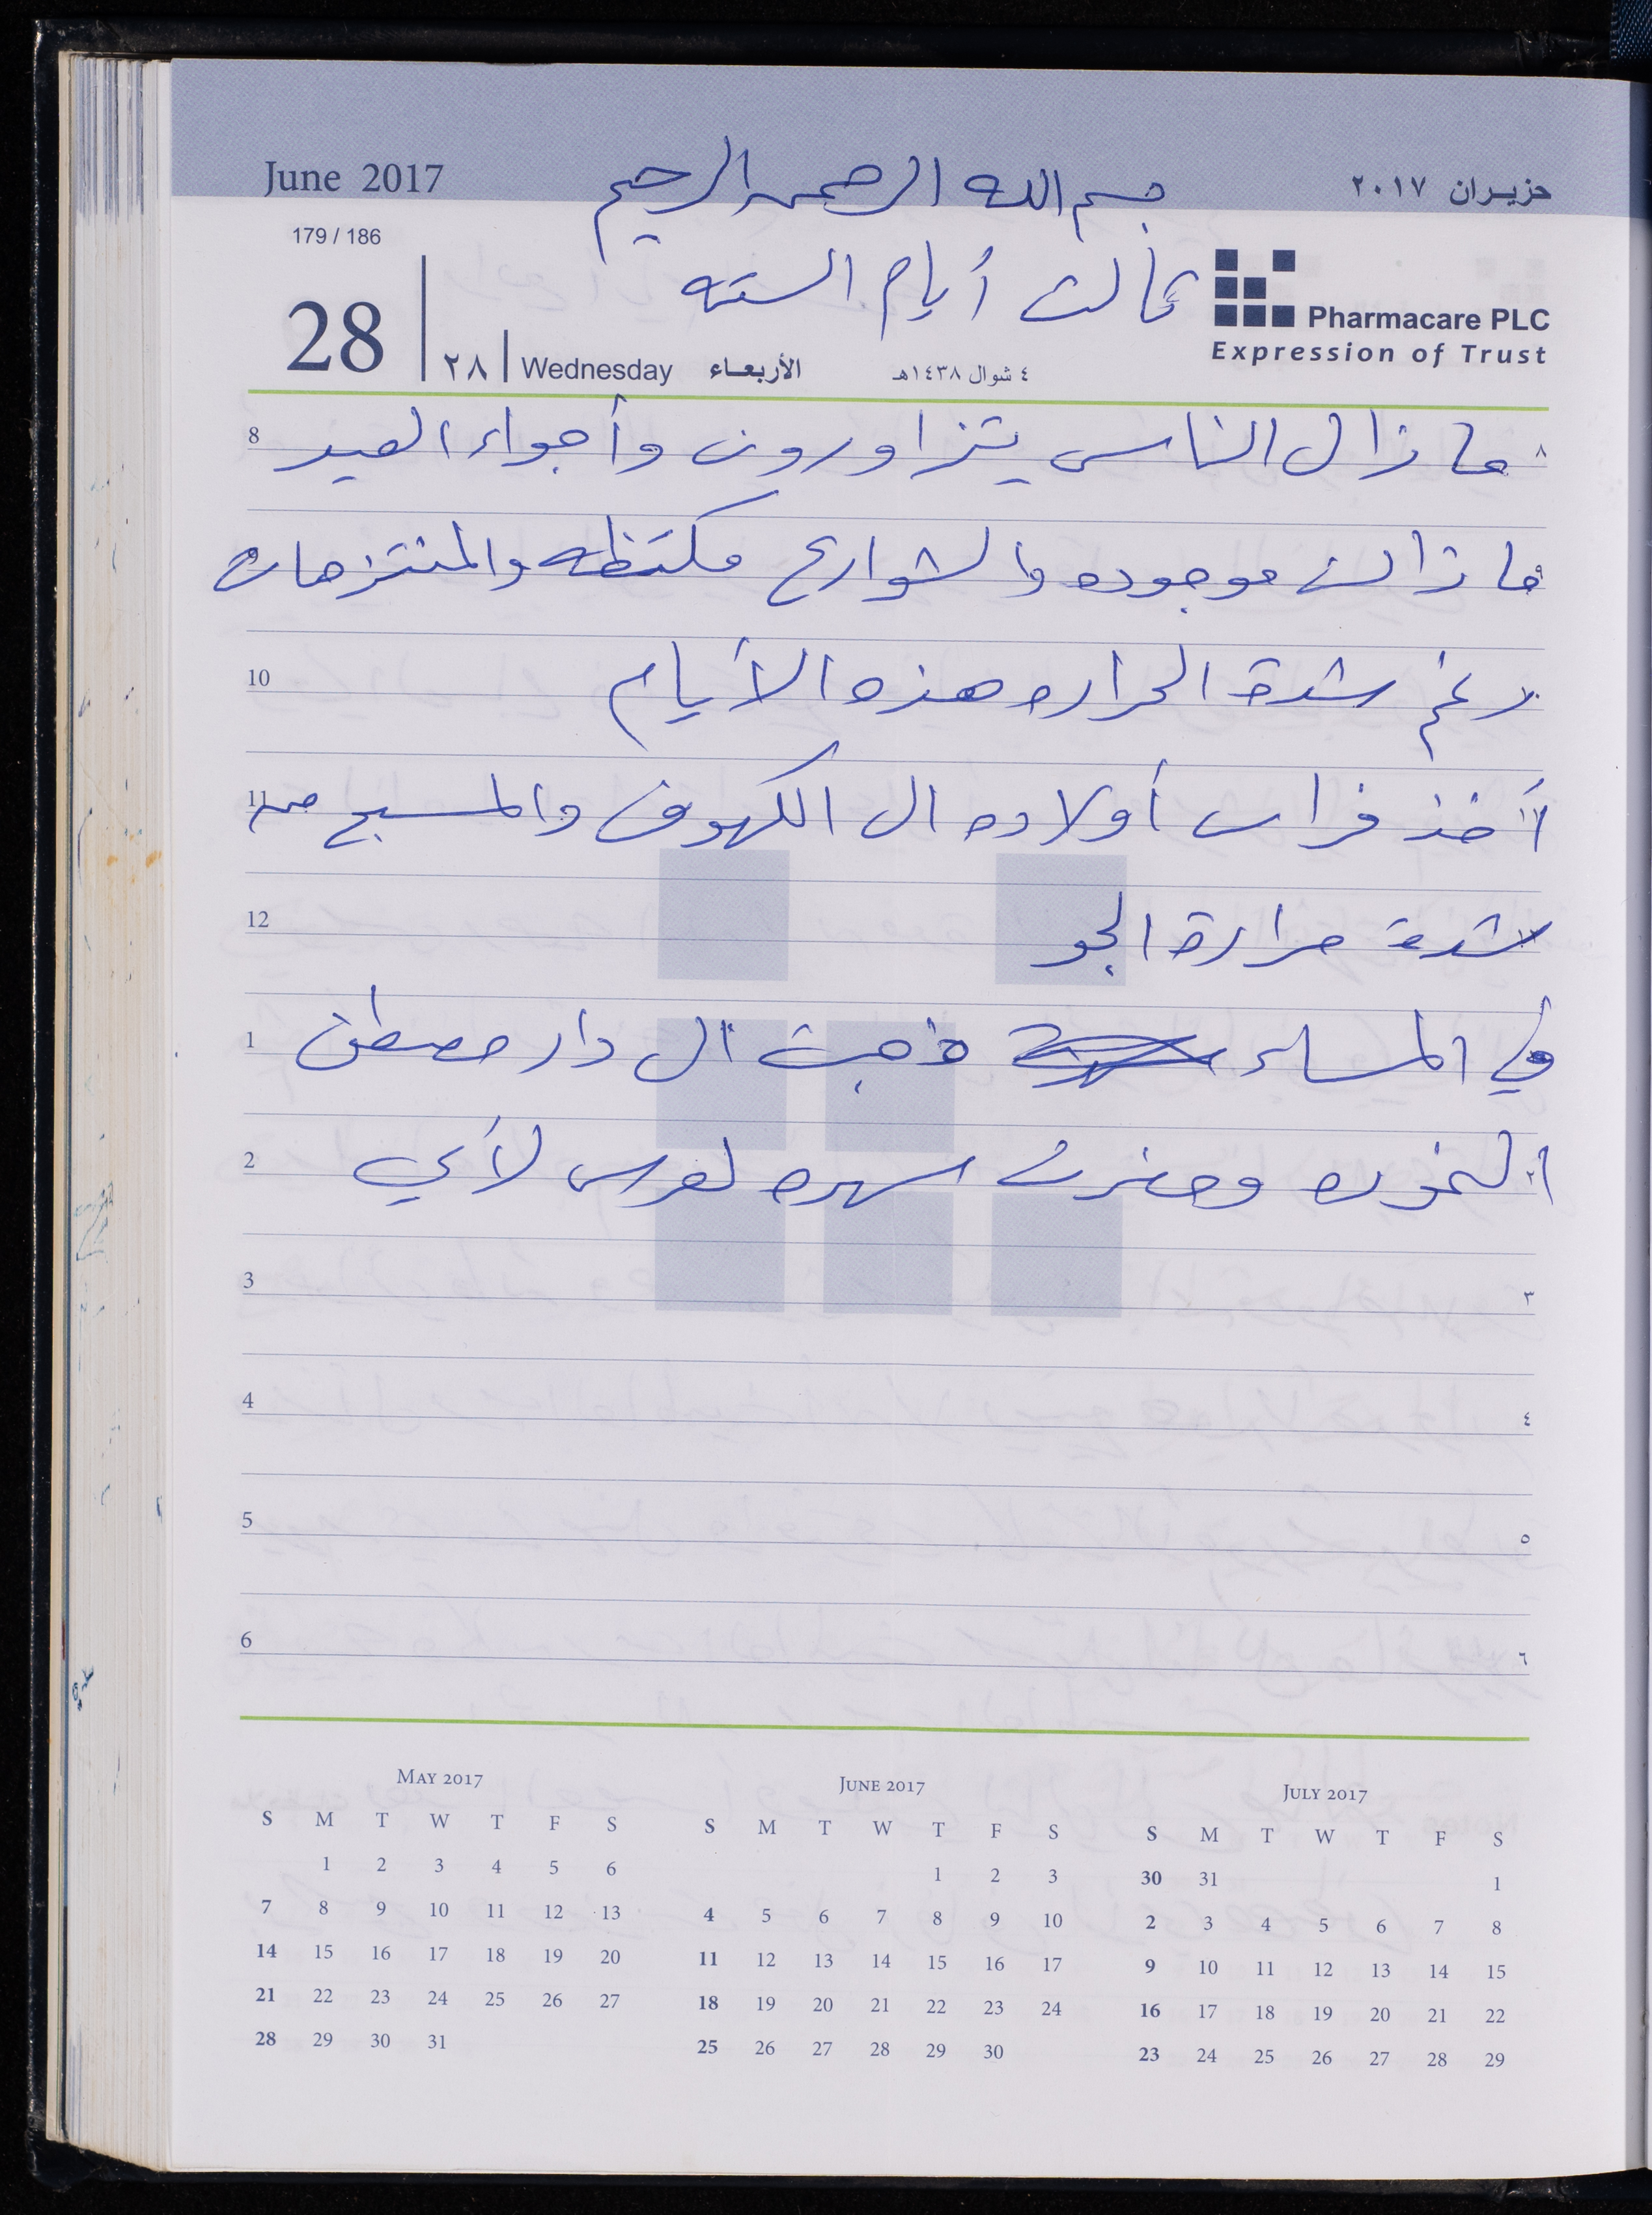 June 2017
حزيران ٢٠١٧
بسم الله الرحمن الرحيم
179 / 186
ثالث أيام السته
Pharmacare PLC
Expression of Trust
28 ٢٨ Wednesday الأربعاء ٤ شوال ١٤٣٨هـ
8 ما زال الناس يتزاورون وأجواء العيد ٨
ما زالت موجوده والشوارع مكتظه والمنتزهات
10 رغم شدة الحراره هذه الأيام
11 أخذ فراس أولاده الى الكهوف والمسبح من
12 شدة حرارة الجو
1 في المساء ذهبت الى دار مصطفى
2 وحضرت سهره لعرس لأبي
3 ٣
4 ٤
5 ٥
6 ٦
MAY 2017
S M T W T F S
1 2 3 4 5 6
7 8 9 10 11 12 13
14 15 16 17 18 19 20
21 22 23 24 25 26 27
28 29 30 31
JUNE 2017
S M T W T F S
1 2 3
4 5 6 7 8 9 10
11 12 13 14 15 16 17
18 19 20 21 22 23 24
25 26 27 28 29 30
JULY 2017
S M T W T F S
30 31 1
2 3 4 5 6 7 8
9 10 11 12 13 14 15
16 17 18 19 20 21 22
23 24 25 26 27 28 29